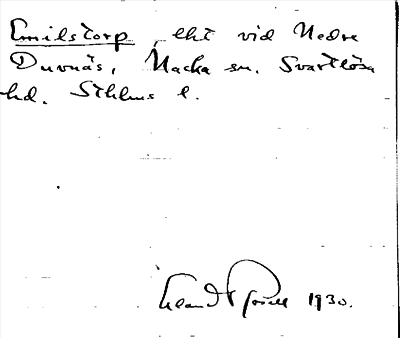 Emilstorp, lht vid Nedre
Duvnäs, Nacka sn. Svartlösa
hd. Sthlms l.
1930.